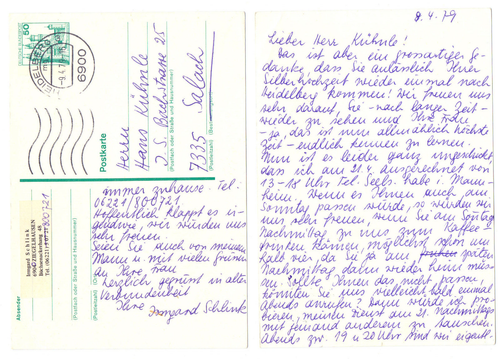 8.4.79
Lieber Herr Kühnle!
Das ist aber ein grossartiger Ge-
danke, dass sie anlässlich Ihrer
Silberhochzeit wieder einmal nach
Heidelberg kommen! Wir freuen uns
sehr darauf, Sie - nach langer Zeit -
wieder zu sehen und Ihre Frau
- ja, das ist nun allmählich höchste
Zeit - endlich kennen zu lernen.
Nun ist es leider ganz ungeschickt
dass ich am 21.4. ausgerechnet von
13-18 Uhr Tel. Seels. habe i. Mann-
heim. Wenn es Ihnen auch am
Sonntag passen würde, so würden wir
uns sehr freuen, wenn Sie am Sonntag
Nachmittag zu uns zum Kaffee
trinken kämen, möglichst schon um
halb vier da Sie ja am späten
Nachmittag dann wieder heim müs-
sen. Sollte Ihnen das nicht passen,
könnten Sie uns vielleicht bald einmal
abends anrufen? Dann würde ich pro-
bieren, meinen Dienst am 21. nachmittags
mit jemand anderem zu tauschen.
Abends zw. 19 u 20 Uhr sind wir eigentl.
immer zuhause. Tel:
06221/800721
Hoffentlich klappt es ir-
gendwie, wir würden uns
sehr freuen.
Seien Sie auch von meinem
Mann u. mit vielen Grüssen
an Ihre Frau
herzlich gegrüsst in alter
Verbundenheit
Ihre Irmgard Schlink
DEUTSCHE BUNDESPOST
50
HEIDELBERG
-9.4.79
6900
Postkarte
Herrn
Hans Kühnle
J. S. Bach strasse 25
(Postfach oder Straße und Hausnummer)
7335 Salach
(Postleitzahl)
Absender
Irmgard Schlink
6900
800721
(Postfach oder Straße und Hausnummer)
(Postleitzahl)